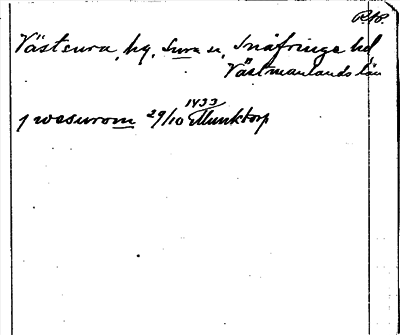 RAP.
Västsura, hg, Sura sn, Snäfringe hd,
Västmanlands län
j wæsurom 29/10 1433 Munktorp